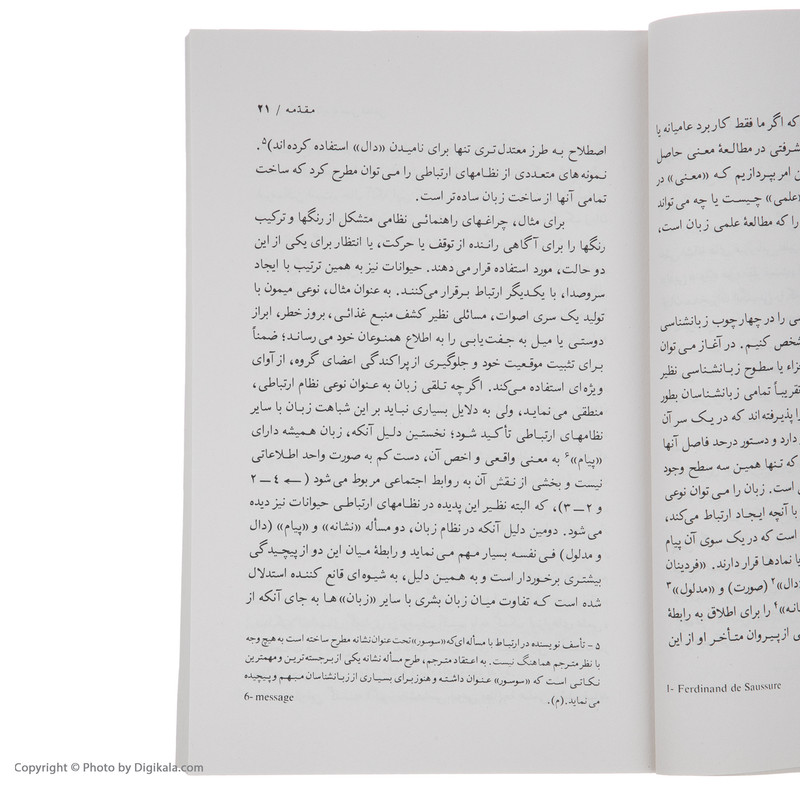 که اگر ما فقط کاربرد عامیانه یا
شرفتی در مطالعهٔ معنی حاصل
ن امر بپردازیم که «معنی» در
«علمی» چیست یا چه می‌تواند
را که مطالعهٔ علمی زبان است،
سی را در چهارچوب زبانشناسی
شخص کنیم. در آغاز می‌توان
جزاء یا سطوح زبانشناسی نظیر
تقریباً تمامی زبانشناسان بطور
را پذیرفته‌اند که در یک سر آن
دارد و دستور در حد فاصل آنها
که تنها همین سه سطح وجود
است. زبان را می‌توان نوعی
با آنچه ایجاد ارتباط می‌کند،
است که در یک سوی آن پیام
یا نمادها قرار دارند. «فردینان
دال»۲ (صورت) و «مدلول»۳
انه»۴ را برای اطلاق به رابطهٔ
ی از پیروان متأخر او از این
1- Ferdinand de Saussure
مقدمه / ۲۱
اصطلاح به طرز معتدل‌تری تنها برای نامیدن «دال» استفاده کرده‌اند)۵.
نمونه‌های متعددی از نظامهای ارتباطی را می‌توان مطرح کرد که ساخت
تمامی آنها از ساخت زبان ساده‌تر است.
برای مثال، چراغهای راهنمائی نظامی متشکل از رنگها و ترکیب
رنگها را برای آگاهی راننده از توقف یا حرکت، یا انتظار برای یکی از این
دو حالت، مورد استفاده قرار می‌دهند. حیوانات نیز به همین ترتیب با ایجاد
سروصدا، با یکدیگر ارتباط برقرار می‌کنند. به عنوان مثال، نوعی میمون با
تولید یک سری اصوات، مسائلی نظیر کشف منبع غذائی، بروز خطر، ابراز
دوستی یا میل به جفت‌یابی را به اطلاع همنوعان خود می‌رساند؛ ضمناً
برای تثبیت موقعیت خود و جلوگیری از پراکندگی اعضای گروه، از آوای
ویژه‌ای استفاده می‌کند. اگرچه تلقی زبان به عنوان نوعی نظام ارتباطی،
منطقی می‌نماید، ولی به دلایل بسیاری نباید بر این شباهت زبان با سایر
نظامهای ارتباطی تأکید شود؛ نخستین دلیل آنکه، زبان همیشه دارای
«پیام»۶ به معنی واقعی و اخص آن، دست‌کم به صورت واحد اطلاعاتی
نیست و بخشی از نقش آن به روابط اجتماعی مربوط می‌شود (← ٤ــ ۲
و ۲ــ ۳)، که البته نظیر این پدیده در نظامهای ارتباطی حیوانات نیز دیده
می‌شود. دومین دلیل آنکه در نظام زبان، دو مسأله «نشانه» و «پیام» (دال
و مدلول) فی‌نفسه بسیار مهم می‌نماید و رابطهٔ میان این دو از پیچیدگی
بیشتری برخوردار است و به همین دلیل، به شیوه‌ای قانع کننده استدلال
شده است که تفاوت میان زبان بشری با سایر «زبان»ها به جای آنکه از
۵ - تأسف نویسنده در ارتباط با مسأله‌ای که «سوسور» تحت عنوان نشانه مطرح ساخته است به هیچ وجه
با نظر مترجم هماهنگ نیست. به اعتقاد مترجم، طرح مسأله نشانه یکی از برجسته‌ترین و مهمترین
نکاتی است که «سوسور» عنوان داشته و هنوز برای بسیاری از زبانشناسان مبهم و پیچیده
می‌نماید.(م).
6- message
Copyright © Photo by Digikala.com